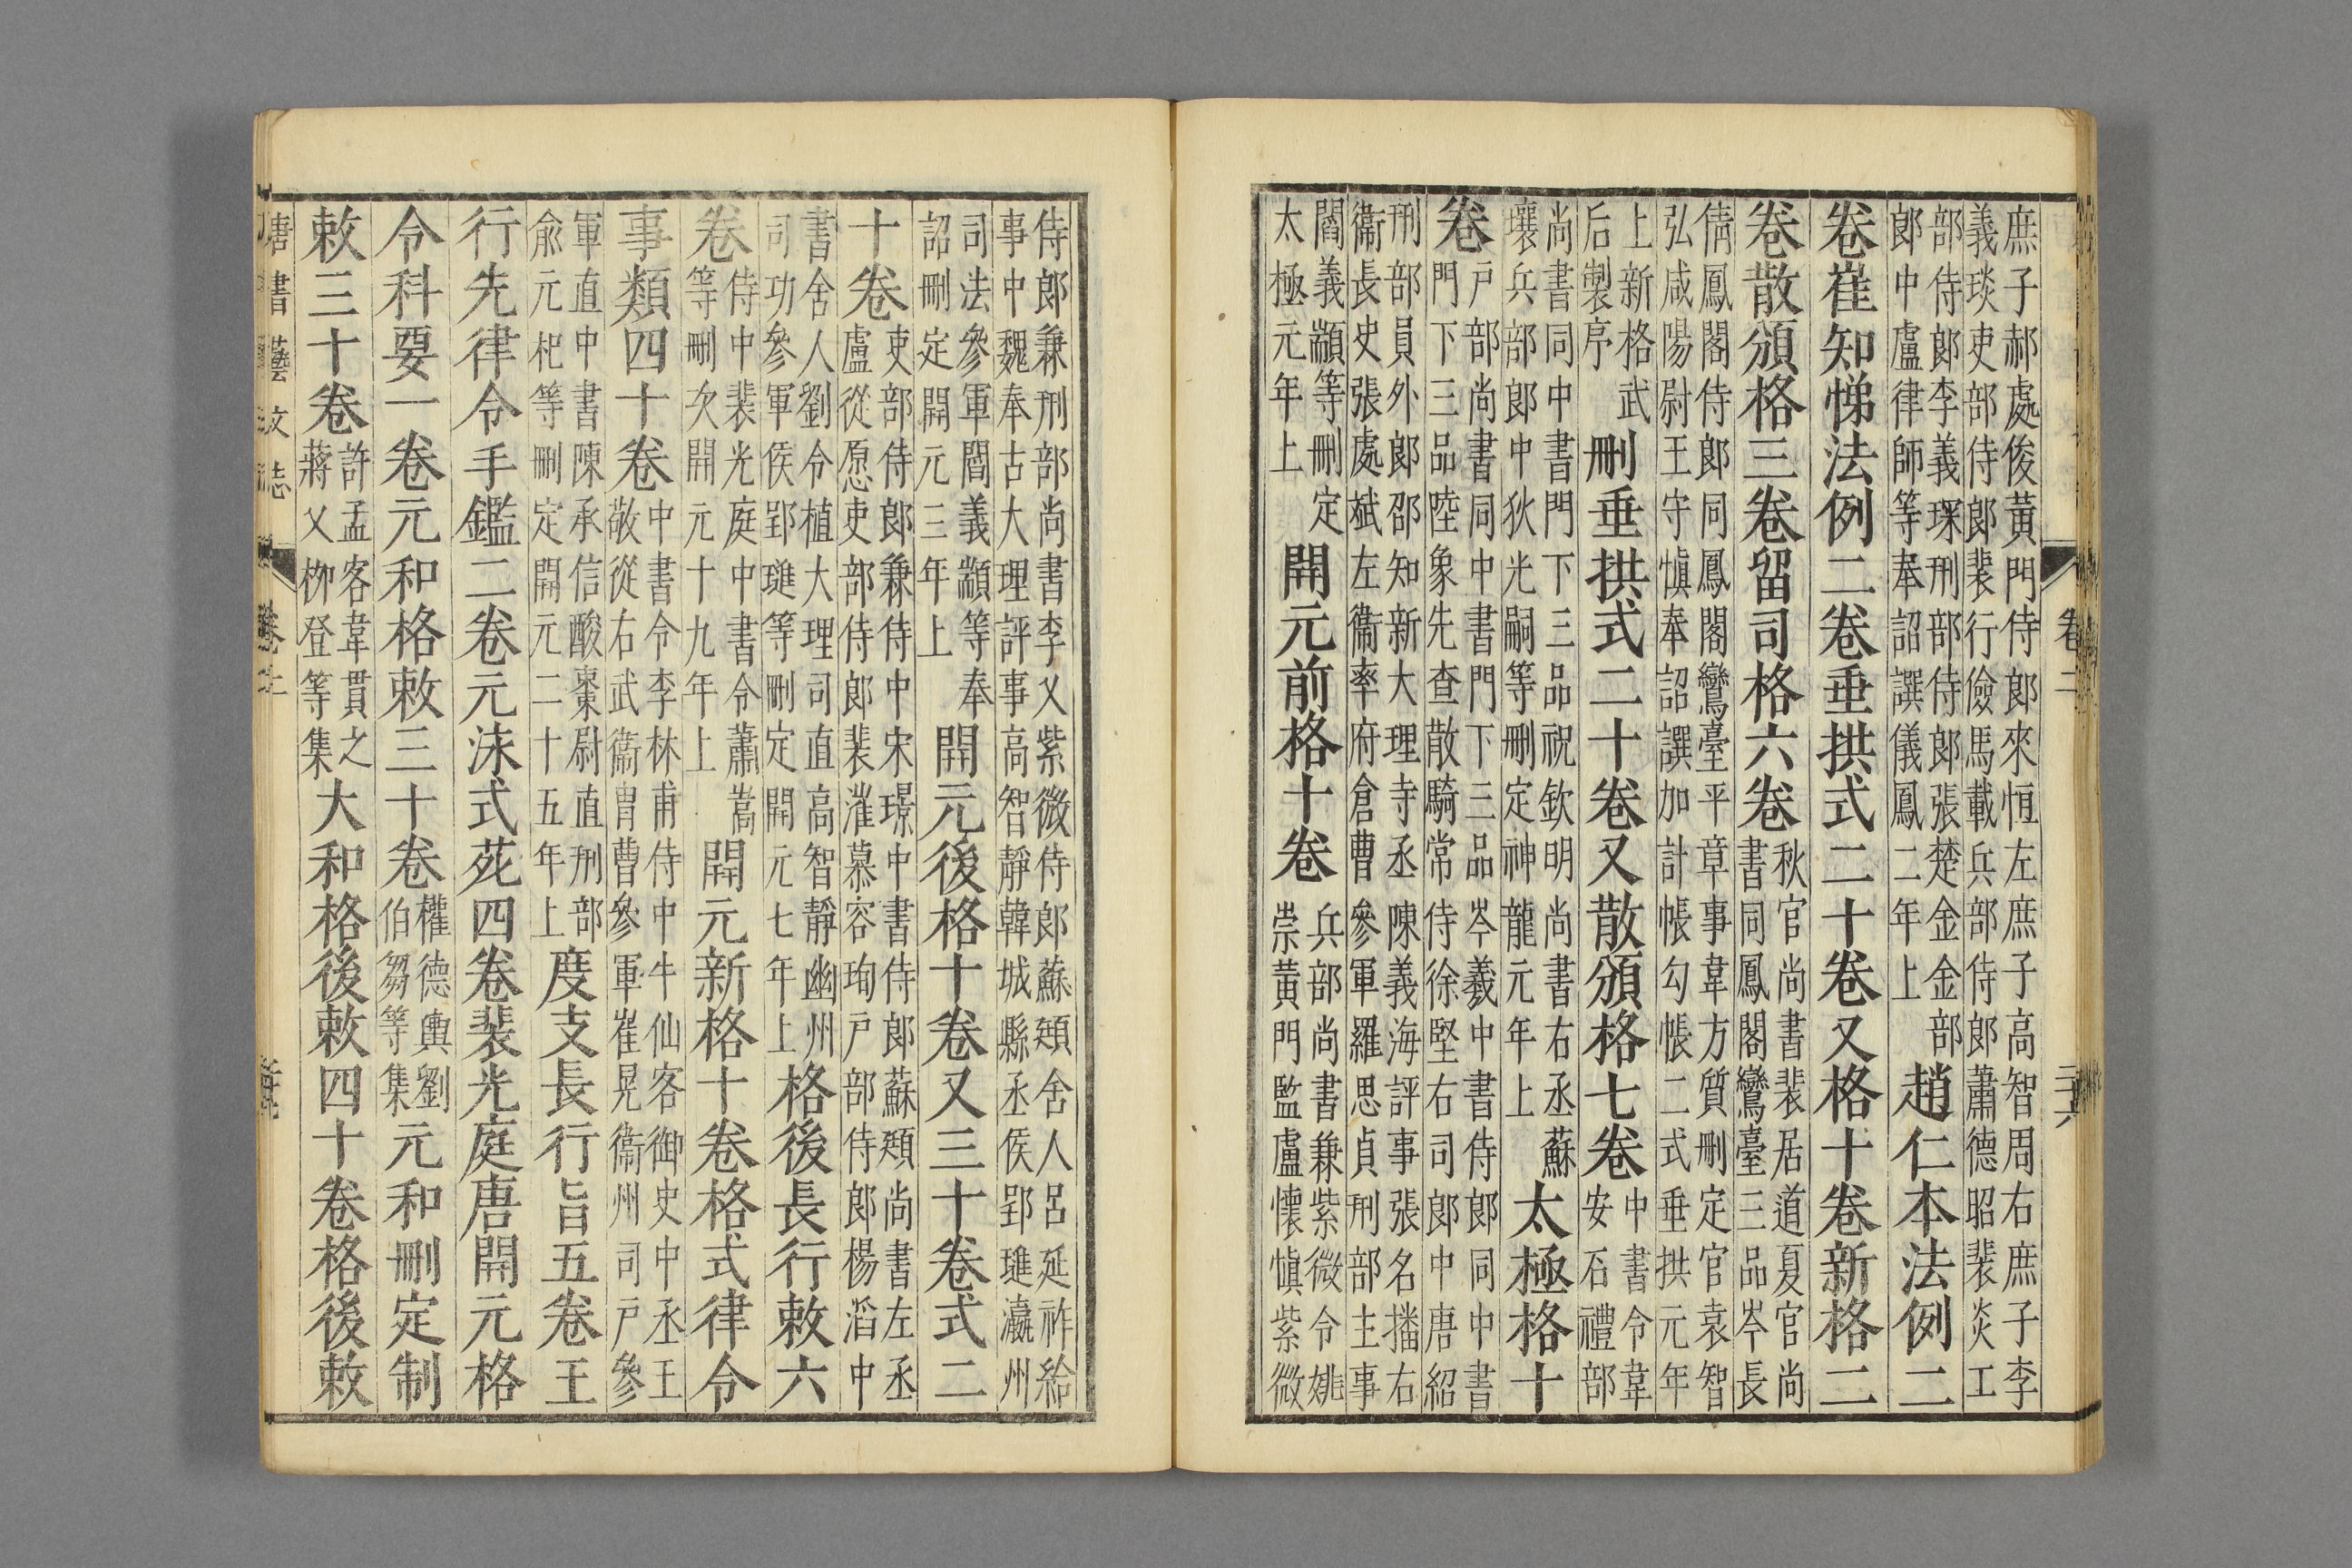 卷二
三六
庶子郝處俊黃門侍郎來恒左庶子高智周右庶子李
義琰吏部侍郎裴行儉馬載兵部侍郎蕭德昭裴炎工
部侍郎李義琛刑部侍郎張楚金金部郎中盧律師等奉詔譔儀鳳二年上趙仁本法例二
卷崔知悌法例二卷垂拱式二十卷又格十卷新格二
卷散頒格三卷留司格六卷秋官尚書裴居道夏官尚書同鳳閣鸞臺三品岑長
倩鳳閣侍郎同鳳閣鸞臺平章事韋方質刪定官袁智
弘咸陽尉王守愼奉詔譔加計帳勾帳二式垂拱元年
上新格武后製序刪垂拱式二十卷又散頒格七卷中書令韋安石禮部
尚書同中書門下三品祝欽明尚書右丞蘇壤兵部郎中狄光嗣等刪定神龍元年上太極格十
卷戶部尚書同中書門下三品岑羲中書侍郎同中書門下三品陸象先查散騎常侍徐堅右司郎中唐紹
刑部員外郎邵知新大理寺丞陳義海評事張名播右
衞長史張處斌左衞率府倉曹參軍羅思貞刑部主事
閻義顓等刪定太極元年上開元前格十卷兵部尚書兼紫微令姚崇黃門監盧懷愼紫微
侍郎兼刑部尚書李乂紫微侍郎蘇頲舍人呂延祚給
事中魏奉古大理評事高智靜韓城縣丞侯郢璡瀛州
司法參軍閻義顓等奉詔刪定開元三年上開元後格十卷又三十卷式二
十卷吏部侍郎兼侍中宋璟中書侍郎蘇頲尚書左丞盧從愿吏部侍郎裴漼慕容珣戶部侍郎楊滔中
書舍人劉令植大理司直高智靜幽州司功參軍侯郢璡等刪定開元七年上格後長行敕六
卷侍中裴光庭中書令蕭嵩等刪次開元十九年上開元新格十卷格式律令
事類四十卷中書令李林甫侍中牛仙客御史中丞王敬從右武衞冑曹參軍崔晃衞州司戶參
軍直中書陳承信酸棗尉直刑部兪元杞等刪定開元二十五年上度支長行旨五卷王
行先律令手鑑二卷元泳式苑四卷裴光庭唐開元格
令科要一卷元和格敕三十卷權德輿劉伯芻等集元和刪定制
敕三十卷許孟容韋貫之蔣乂柳登等集大和格後敕四十卷格後敕
唐書藝文志
卷二